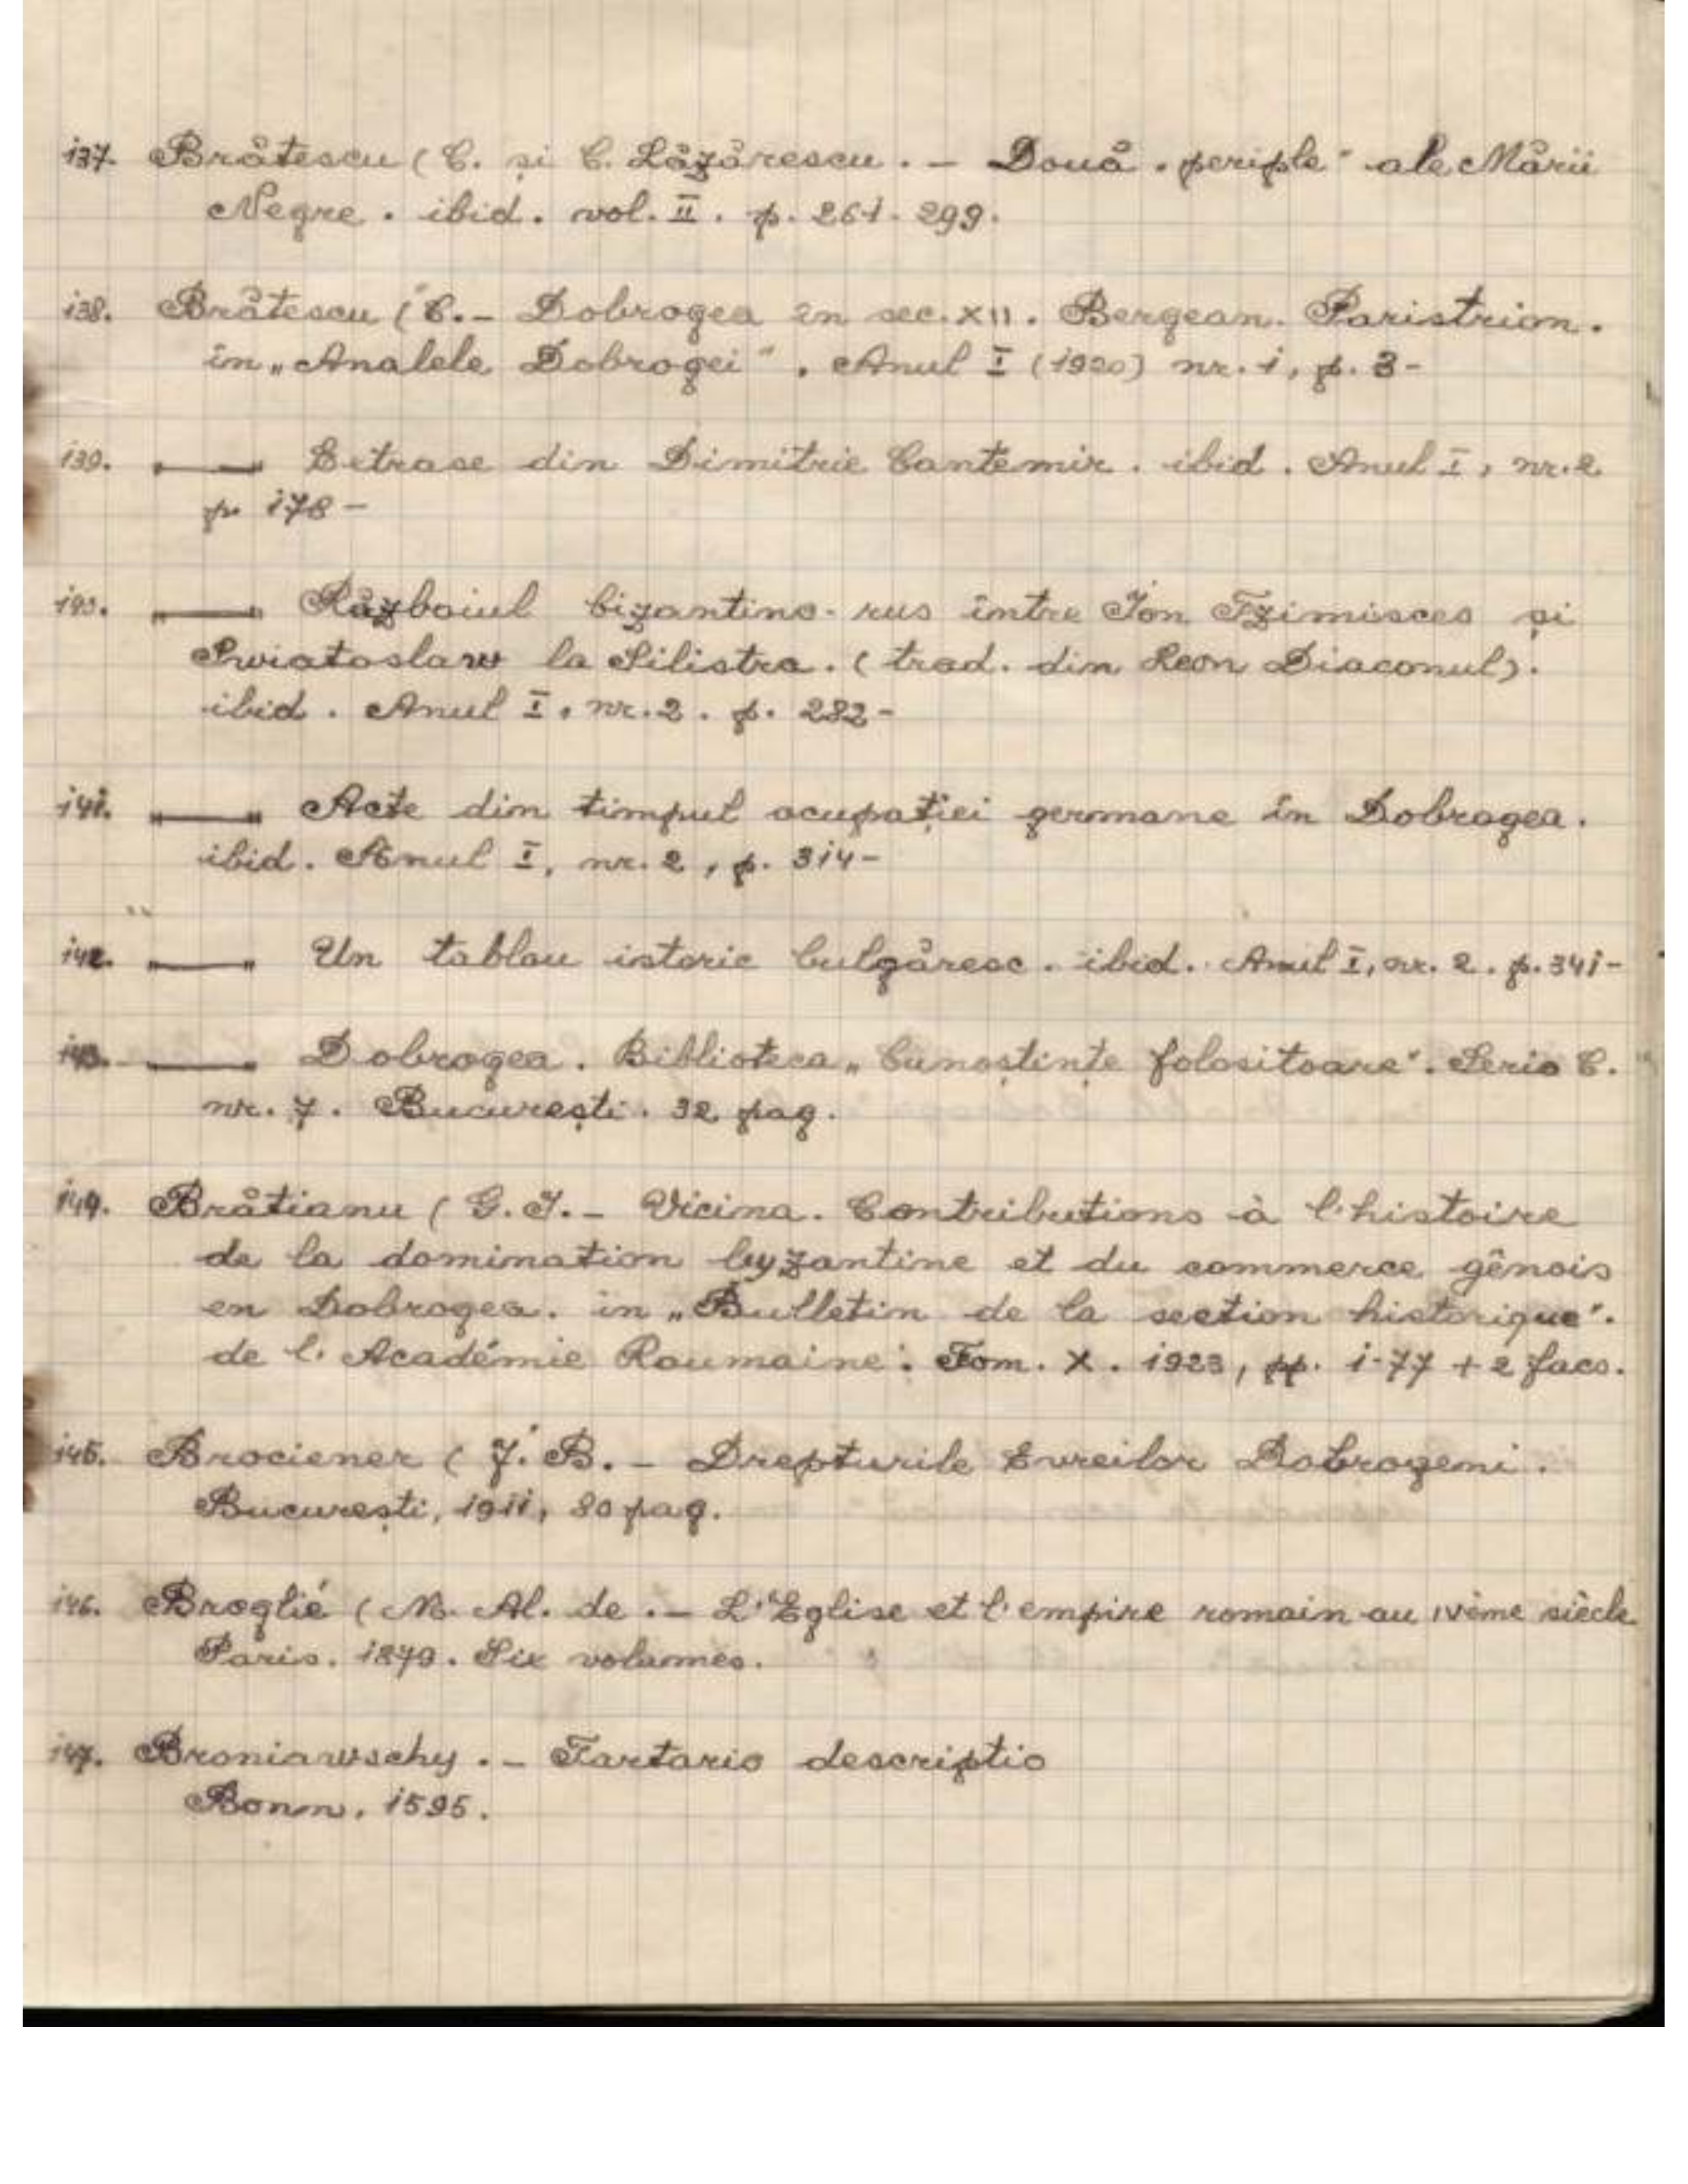 137. Brătescu (C. și C. Lăzărescu. - Două „periple" ale Mării
Negre. ibid. vol. II. p. 261-299.
138. Brătescu (C. - Dobrogea în sec. XII. Bergean. Paristrion.
în „Analele Dobrogei". Anul I (1920) nr. 1, p. 3-
139. —— Extrase din Dimitrie Cantemir. ibid. Anul I, nr. 2
p. 178-
140. —— Războiul bizantino-rus între Ion Tzimisces și
Swiatoslaw la Silistra. (trad. din Leon Diaconul).
ibid. Anul I, nr. 2. p. 282-
141. —— Acte din timpul ocupației germane în Dobrogea.
ibid. Anul I, nr. 2, p. 314-
142. —— Un tablou istoric bulgăresc. ibid. Anul I, nr. 2. p. 341-
143. —— Dobrogea. Biblioteca „Cunoștințe folositoare". Seria C.
nr. 7. București. 32 pag.
144. Brătianu (G. I. - Vicina. Contributions à l'histoire
de la domination byzantine et du commerce génois
en Dobrogea. in „Bulletin de la section historique".
de l'Académie Roumaine. Tom. X. 1923, pp. 1-77 + 2 facs.
145. Brociener (J. B. - Drepturile Evreilor Dobrogeni.
București, 1911, 80 pag.
146. Broglié (M. Al. de. - L'Eglise et l'empire romain au IVème siècle
Paris. 1879. Six volumes.
147. Broniawschy. - Tartario descriptio
Bonn, 1595.